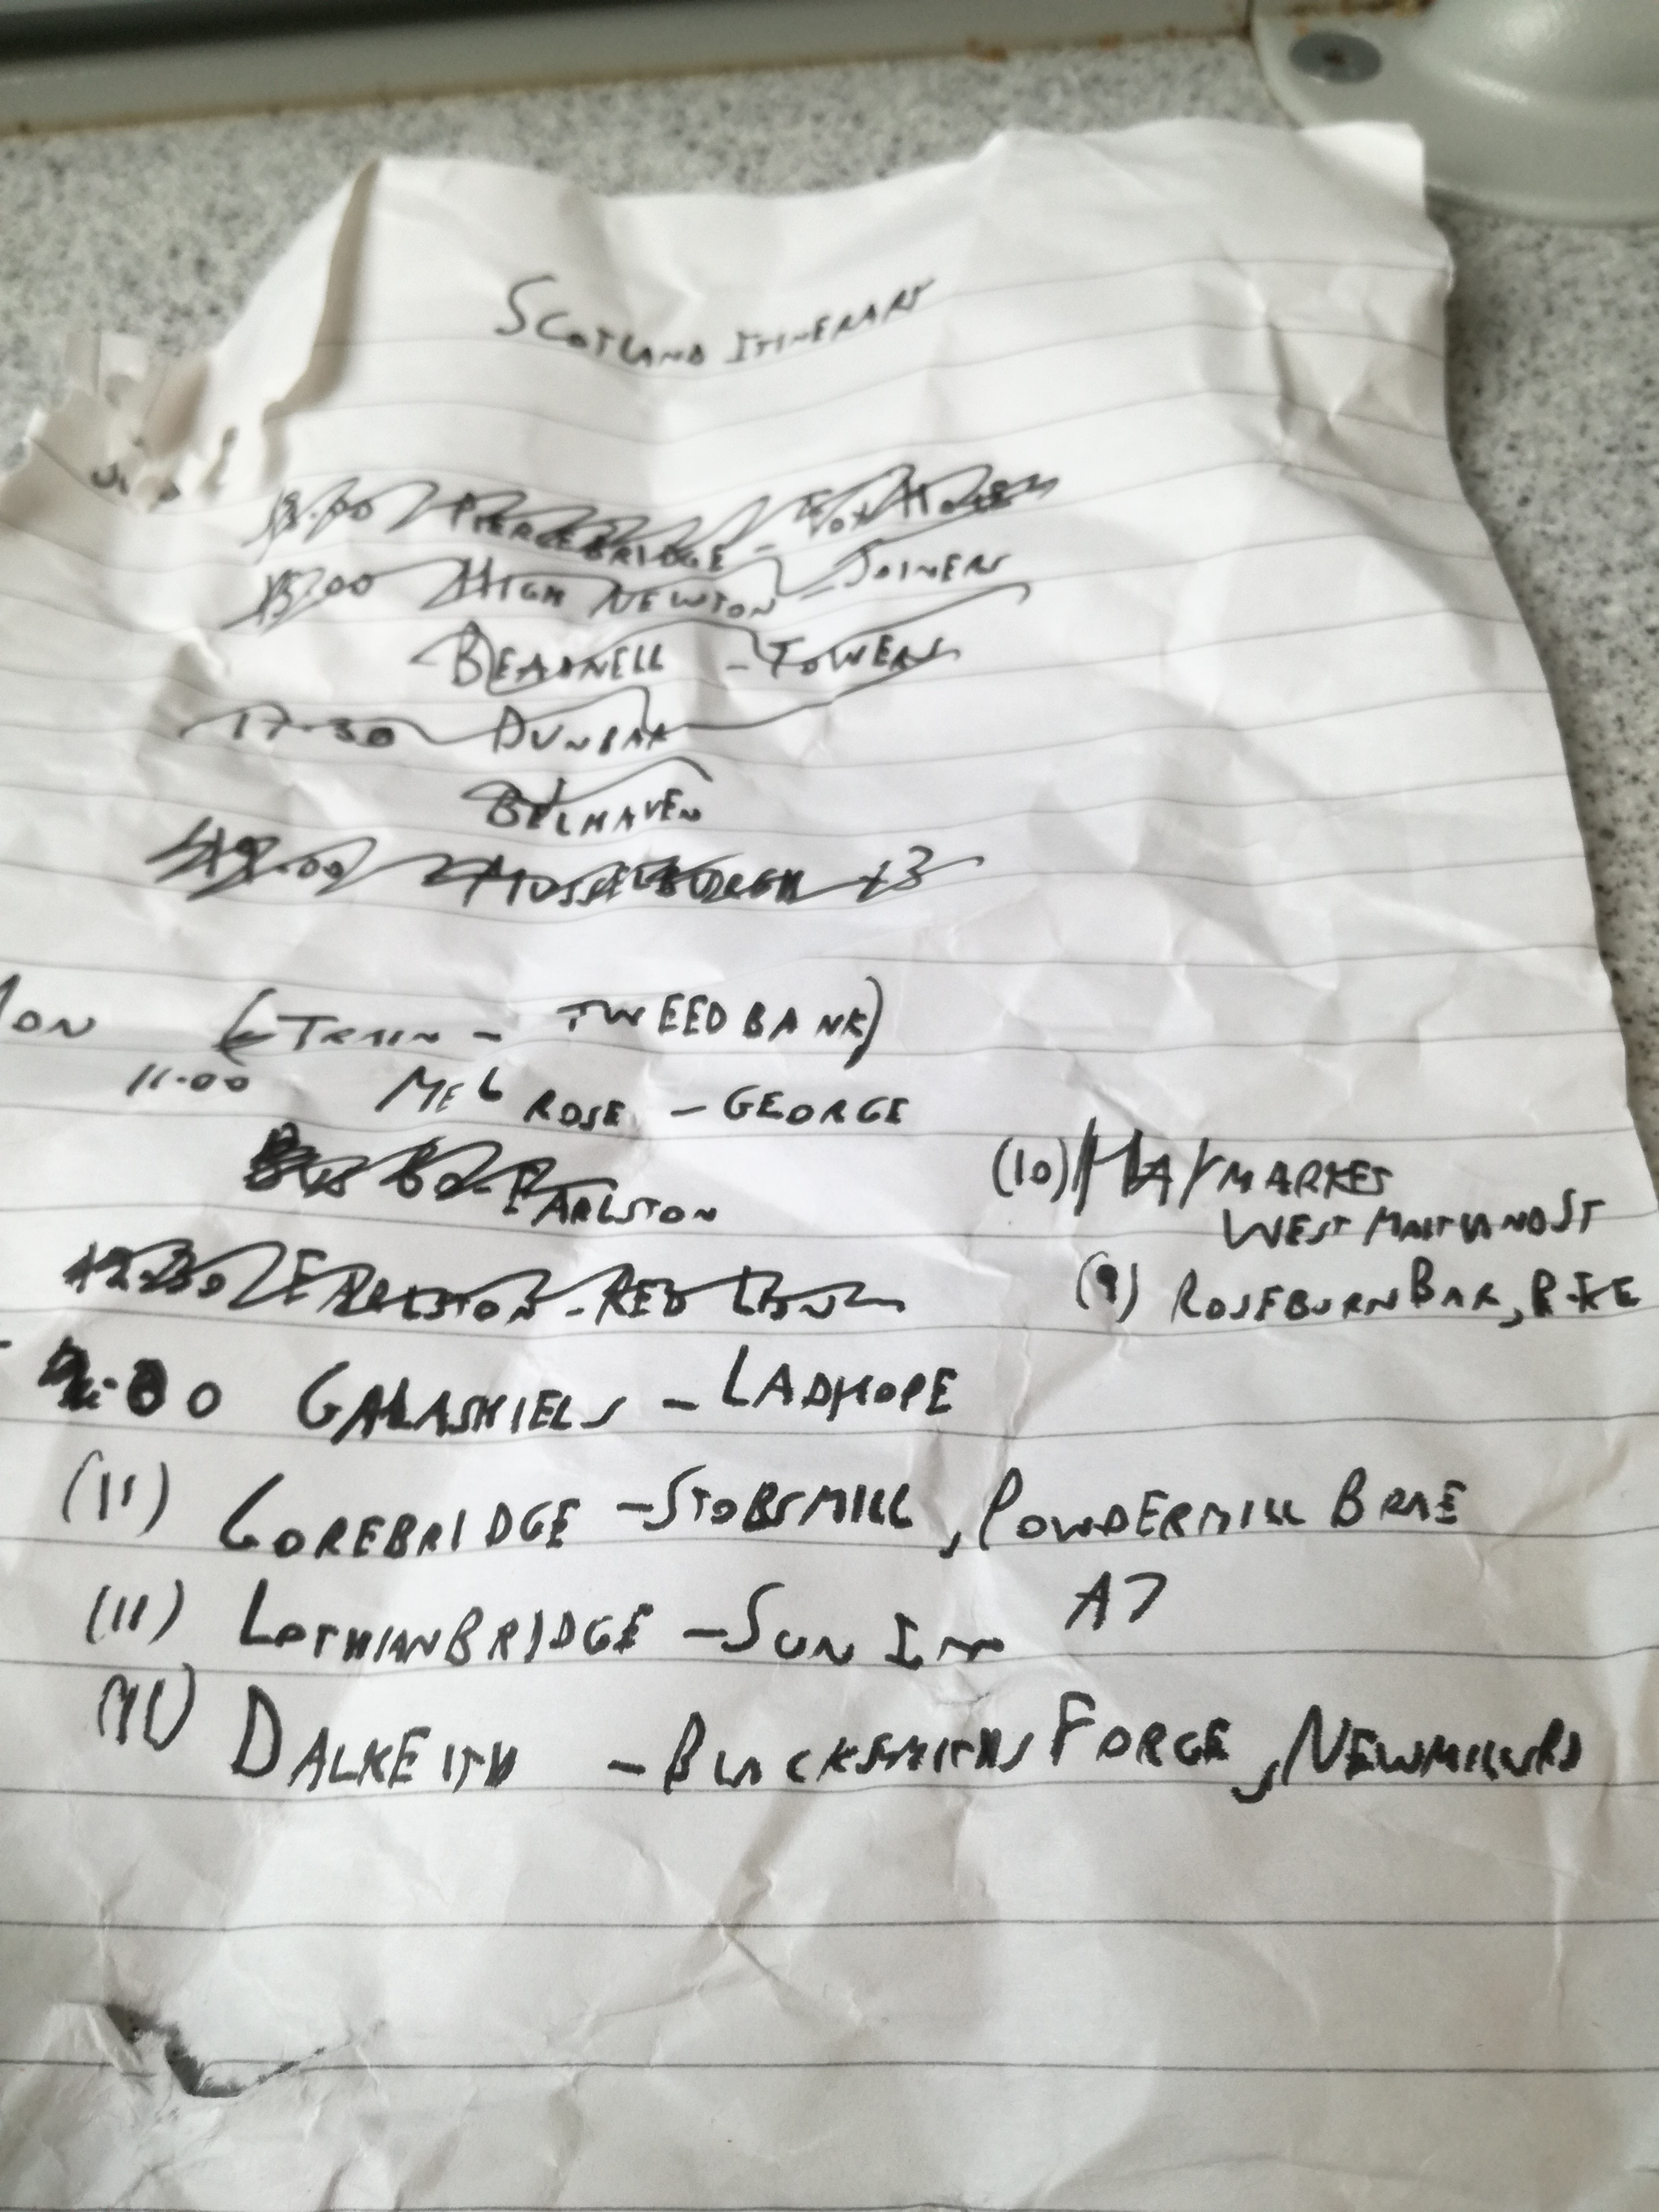 SCOTLAND ITINERARY
PIERCEBRIDGE - FOX HOLE
15.00 HIGH NEWTON - JOINERS
BEADNELL - TOWERS
17.30 DUNBAR
BELHAVEN
MUSSELBURGH x3
MON (TRAIN - TWEEDBANK)
11.00 MELROSE - GEORGE
EARLSTON
EARLSTON - RED LION
GALASHIELS - LADHOPE
(10) HAYMARKET
WEST MAITLAND ST
(9) ROSEBURN BAR,
(11) GOREBRIDGE - STOBSMILL, POWDERMILL BRAE
(11) LOTHIANBRIDGE - SUN INN A7
(11) DALKEITH - BLACKSMITHS FORGE, NEWMILLS RD